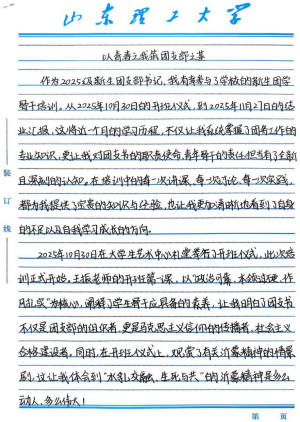 山东理工大学
以青春之我筑团支部之基
作为2025级新生团支部书记,我有幸参与了学校的新生团学
骨干培训。从2025年10月30日的开班仪式,到2025年11月27日的结
业汇报,这将近一个月的学习历程,不仅让我系统掌握了团务工作的
专业知识,更让我对团支书的职责使命、青年骨干的责任担当有了全新
且深刻的认知。在培训中的每一次讲课、每一次讨论、每一次实践,
都为我提供了宝贵的知识与经验,也让我更加清晰地看到了自身
的不足以及自我学习成长的方向。
2025年10月30日在大学生艺术中心礼堂举行了开班仪式,此次培
训正式开始。王振老师的开班第一课,以“政治可靠、本领过硬、作
风扎实”为核心,阐释了学生骨干应具备的素养,让我明白了团支书
不仅是团支部的组织者,更是马克思主义信仰的传播者,社会主义
合格建设者。同时,在开班仪式上,观赏了有关沂蒙精神的情景
剧,这让我体会到“水乳交融、生死与共”的沂蒙精神是多么
动人,多么伟大!
装
订
线
第 页